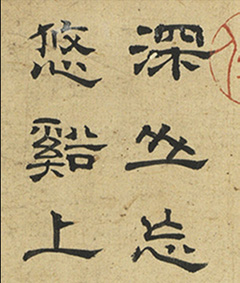 深坐忘
悠谿上